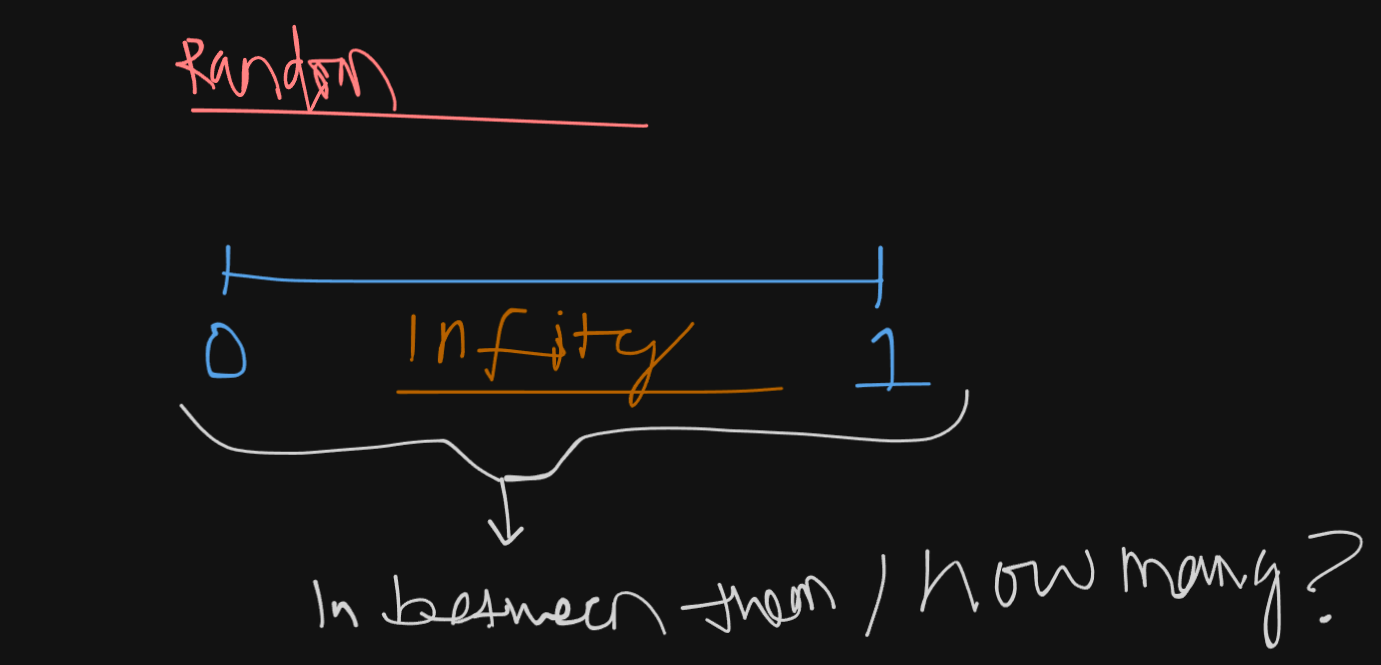 Random
0 Infity 1
In between them / how many?